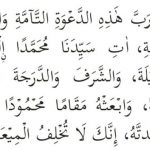 رَبَّ هٰذِهِ الدَّعْوَةِ التَّآمَّةِ وَال
ةِ، اٰتِ سَيِّدَنَا مُحَمَّدًا
يْلَةَ، وَالشَّرَفَ وَالدَّرَجَةَ
، وَابْعَثْهُ مَقَامًا مَحْمُوْدًا
دتَّهُ، إِنَّكَ لَا تُخْلِفُ الْمِيْعَ